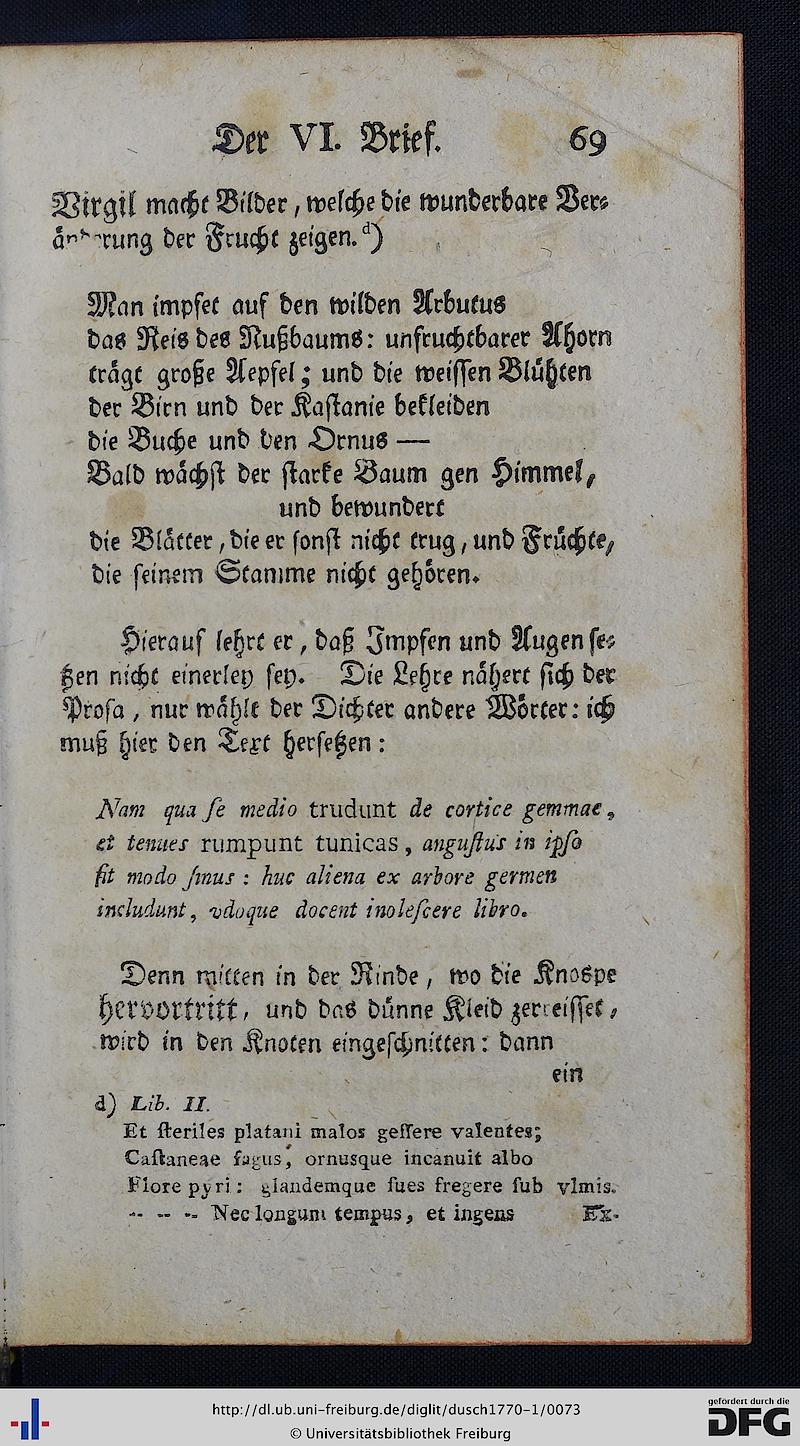 Der VI. Brief. 69
Virgil macht Bilder, welche die wunderbare Ver-
änderung der Frucht zeigen. d)
Man impfet auf den wilden Arbutus
das Reis des Nußbaums: unfruchtbarer Ahorn
trägt große Aepfel; und die weissen Blühten
der Birn und der Kastanie bekleiden
die Buche und den Ornus —
Bald wächst der starke Baum gen Himmel,
und bewundert
die Blätter, die er sonst nicht trug, und Früchte,
die seinem Stamme nicht gehören.
Hierauf lehrt er, daß Impfen und Augen se-
tzen nicht einerley sey. Die Lehre nähert sich der
Prosa, nur wählt der Dichter andere Wörter: ich
muß hier den Text hersetzen:
Nam qua ſe medio trudunt de cortice gemmae,
et tenues rumpunt tunicas, anguſtus in ipſo
fit modo ſinus: huc aliena ex arbore germen
includunt, vdoque docent inoleſcere libro.
Denn mitten in der Rinde, wo die Knospe
hervortritt, und das dünne Kleid zerreisset,
wird in den Knoten eingeschnitten: dann
ein
d) Lib. II.
Et ſteriles platani malos geſſere valentes;
Caſtaneae fagus, ornusque incanuit albo
Flore pyri: glandemque ſues fregere ſub vlmis.
-- -- -- Nec longum tempus, et ingens Ex-
http://dl.ub.uni-freiburg.de/diglit/dusch1770-1/0073
© Universitätsbibliothek Freiburg
gefördert durch die
DFG